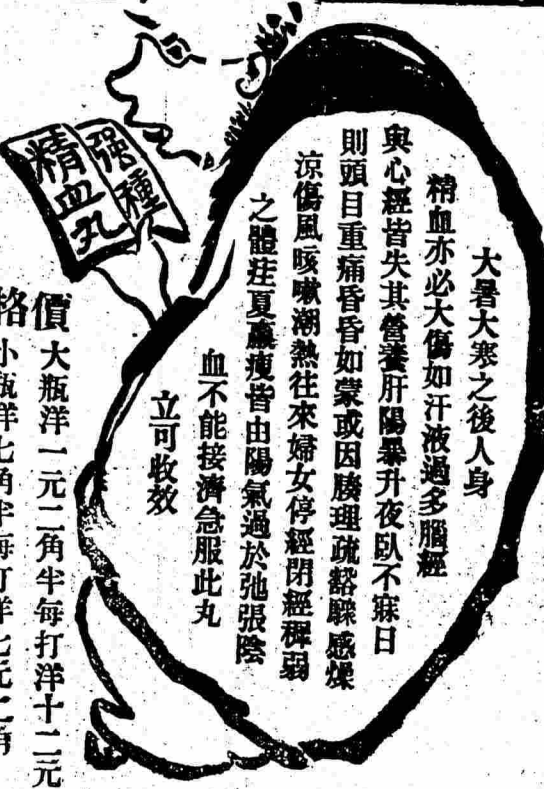 強種
精血丸
大暑大寒之後人身
精血亦必大傷如汗液過多腦經
與心經皆失其營養肝陽暴升夜臥不寐日
則頭目重痛昏昏如蒙或因腠理疏豁驟感燥
涼傷風咳嗽潮熱往來婦女停經閉經稺弱
之體疰夏羸瘦皆由陽氣過於弛張陰
血不能接濟急服此丸
立可收效
價 大瓶洋一元二角半每打洋十二元
格 小瓶洋七角半每打洋七元二角